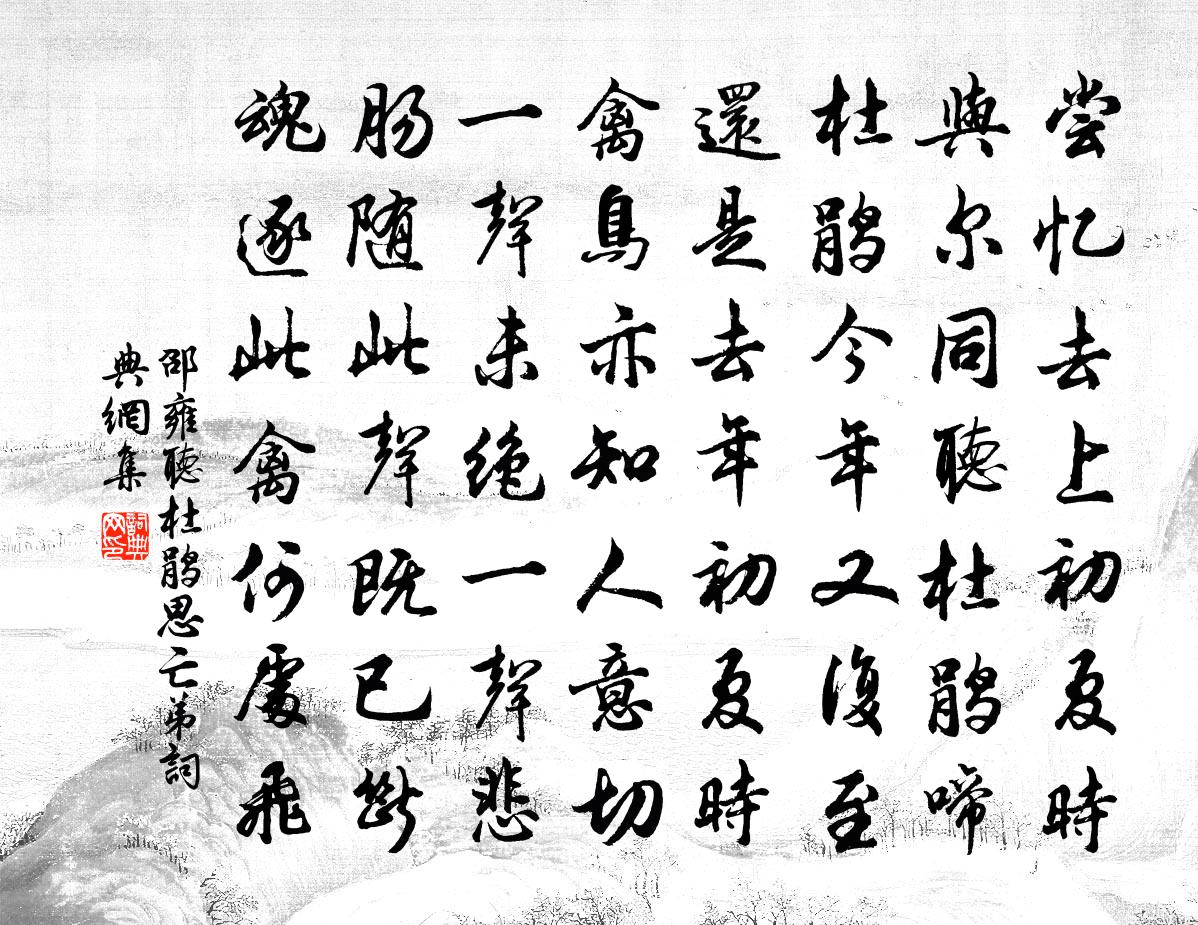 尝忆去上初夏时
與尔同聽杜鹃啼
杜鹃今年又復至
還是去年初夏時
禽鳥亦知人意切
一聲未绝一聲悲
肠随此聲既已斷
魂逐此禽何處飛
邵雍聽杜鹃思亡弟詞
典網集
詞典
网印